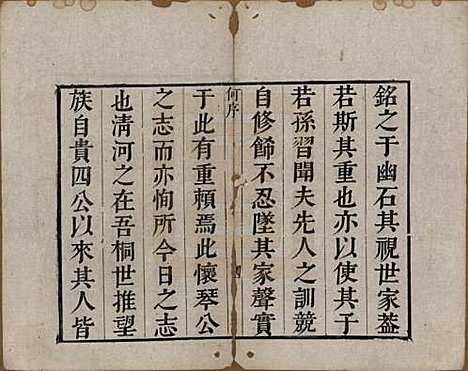 銘之于幽石其視世家葢
若斯其重也亦以使其子
若孫習聞夫先人之訓競
自修飾不忍墜其家聲實
何序
于此有重賴焉此懷琴公
之志而亦恂所今日之志
也清河之在吾桐世推望
族自貴四公以來其人皆